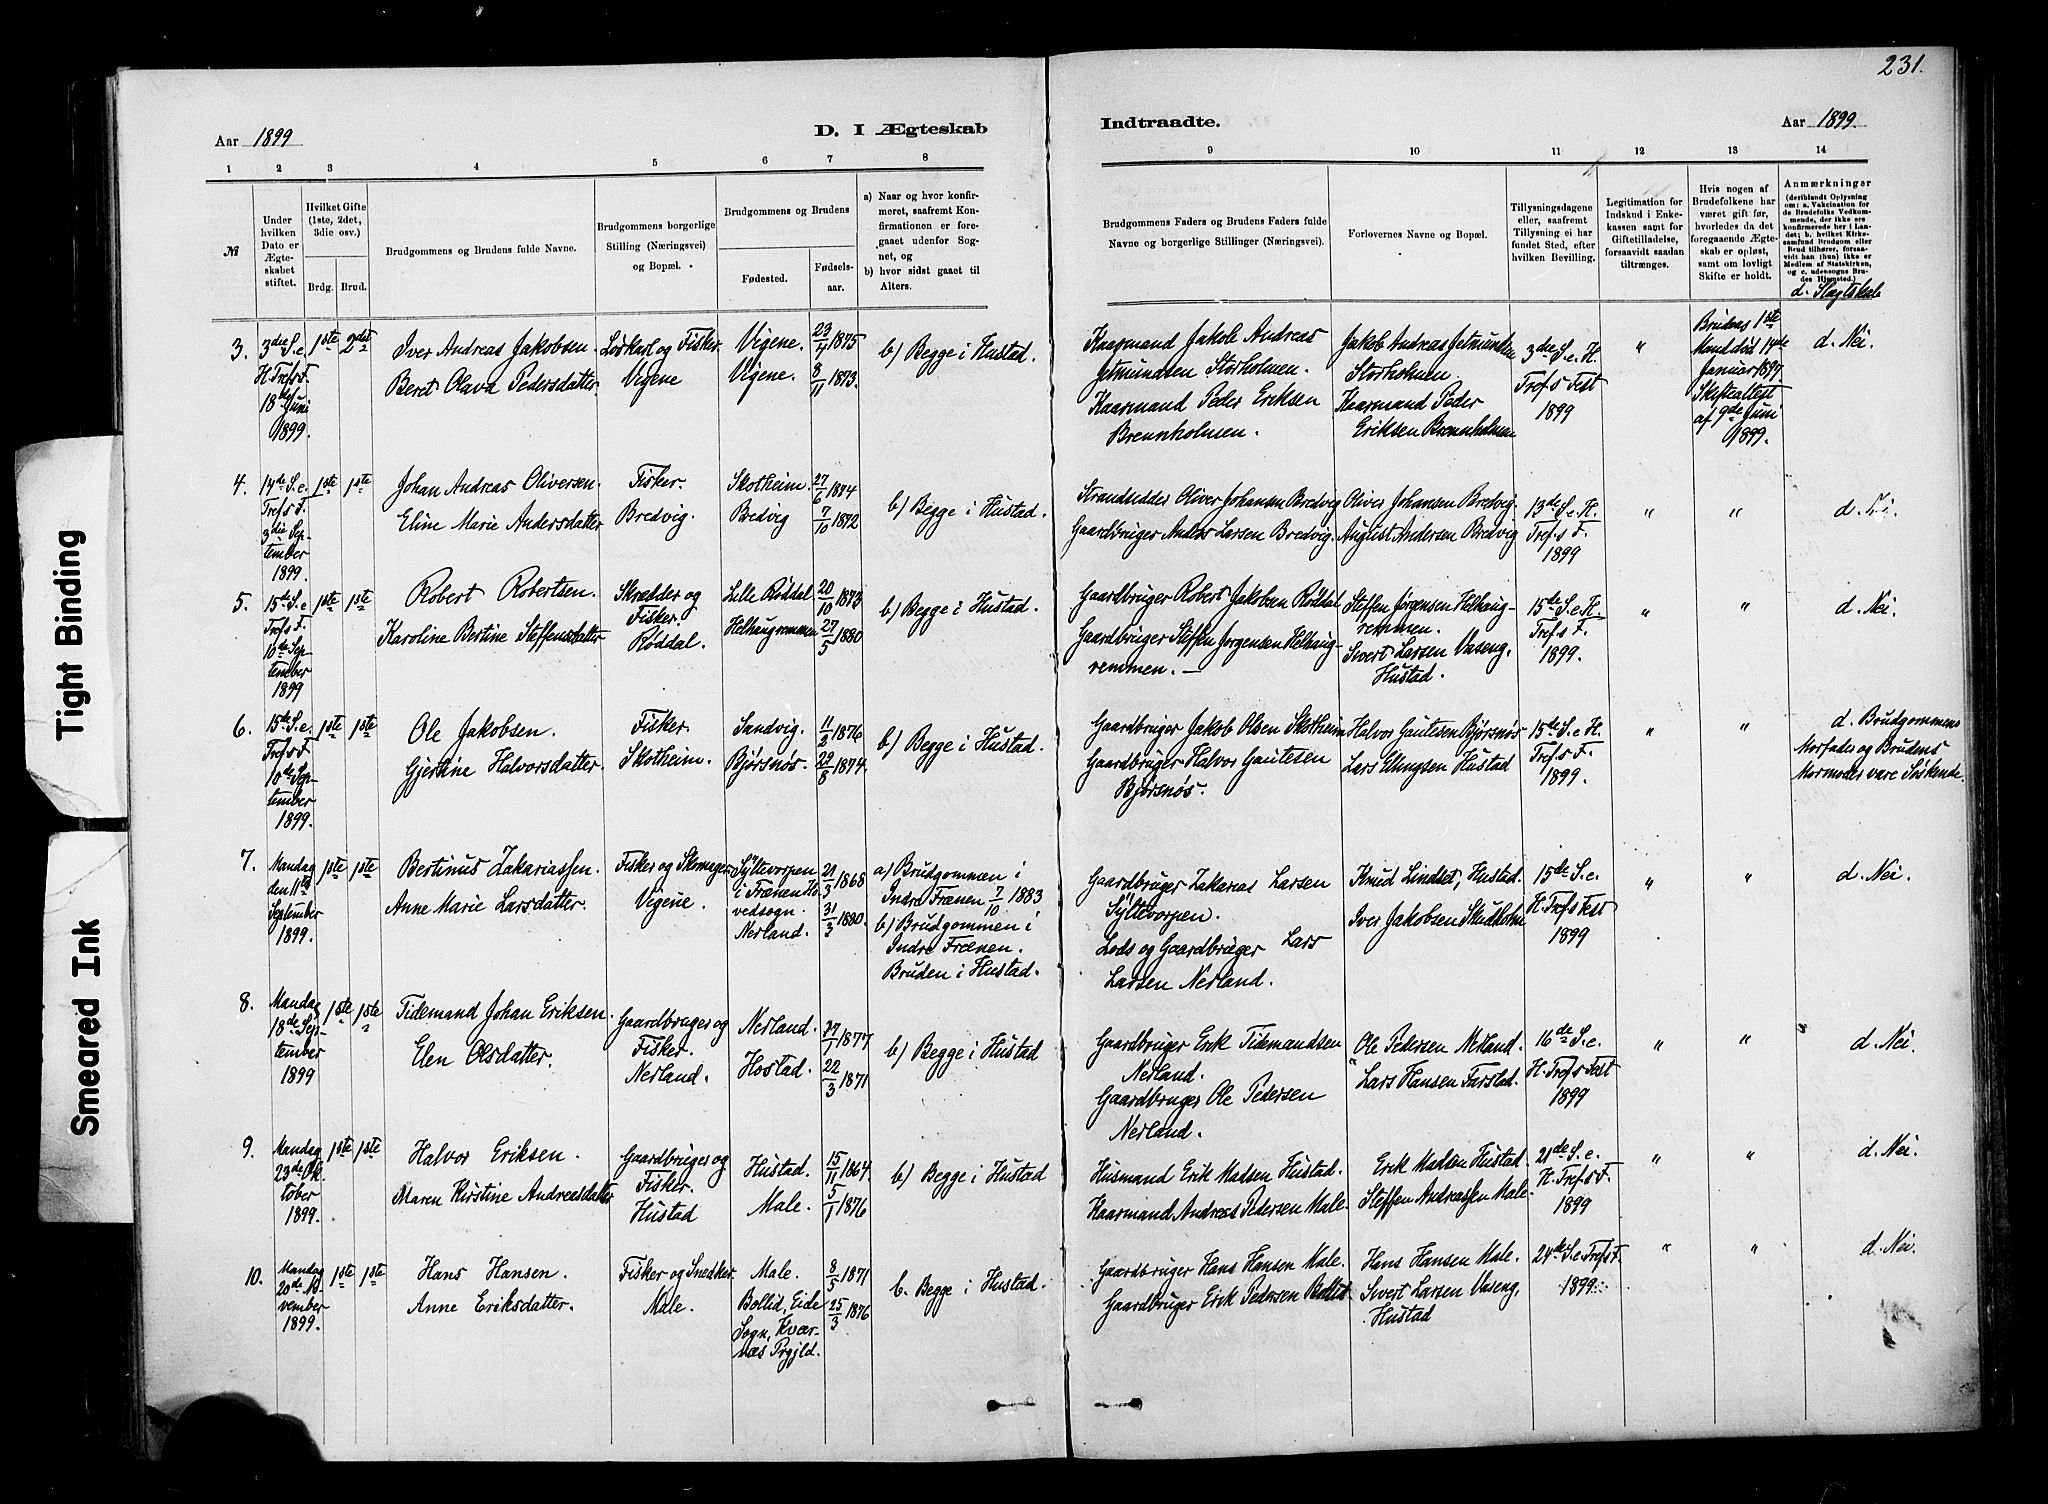 231.
Tight Binding
Smeared Ink
Aar 1899
D. I Ægteskab
Indtraadte.
Aar 1899.
1 2 3 4 5 6 7 8
9 10 11 12 13 14
№
Under hvilken Dato er Ægteskabet stiftet.
Hvilket Gifte (1ste, 2det, 3die osv.)
Brdg. Brud.
Brudgommens og Brudens fulde Navne.
Brudgommens borgerlige Stilling (Næringsvei) og Bopæl.
Brudgommens og Brudens
Fødested.
Fødselsaar.
a) Naar og hvor konfirmeret, saafremt Konfirmationen er foregaaet udenfor Sognet, og
b) hvor sidst gaaet til Alters.
Brudgommens Faders og Brudens Faders fulde Navne og borgerlige Stillinger (Næringsvei).
Forlovernes Navne og Bopæl.
Tillysningsdagene eller, saafremt Tillysning ei har fundet Sted, efter hvilken Bevilling.
Legitimation for Indskud i Enkekassen samt for Giftetilladelse, forsaavidt saadan tiltrænges.
Hvis nogen af Brudefolkene har været gift før, hvorledes da det foregaaende Ægteskab er opløst, samt om lovligt Skifte er holdt.
Anmærkningar
(deriblandt Oplysning om: a. Vakcination for de Brudefolks Vedkommende, der ikke ere konfirmerede her i Landet; b. hvilket Kirkesamfund Brudgom eller Brud tilhører, forsaavidt han (hun) ikke er Medlem af Statskirken, og c. udensogns Brudes Hjemsted.)
d. Slægtskab
3.
3die S. e.
H. Tref. s F.
18de Juni
1899.
1ste
2det
Iver Andreas Jakobsen.
Beret Olava Pedersdatter.
Loskarl og Fisker.
Vigene
Vigene.
Vigene.
23/4 1875
8/11 1873.
b) Begge i Hustad.
Kaarmand Jakob Andreas
Jetmundsen Storholmen.
Kaarmand Peder Eriksen
Brennholmen.
Jakob Andreas Jetmundsen
Storholmen.
Kaarmand Peder
Eriksen Brennholmen
3die S. e. H.
Tref. s Fest
1899
"
Brudens 1ste
Mand død 14de
Januar 1897.
Skifteattest
af 9de Juni
1899.
d. Nei.
4.
14de S. e.
Tref s F.
3die September
1899.
1ste
1ste
Johan Andreas Oliversen.
Eline Marie Andersdatter
Fisker.
Bredvig.
Skotheim.
Bredvig
27/6 1874
7/10 1872
b) Begge i Hustad.
Strandsidder Oliver Johansen Bredvig
Gaardbruger Anders Larsen Bredvig.
Oliver Johansen Bredvig.
August Andersen Bredvig
13de S. e. H.
Tref. s F.
1899
"
"
5.
15de S. e
Tref s F.
10de September
1899
1ste
1ste
Robert Robertsen.
Karoline Bertine Steffensdatter
Skrædder og
Fisker.
Röddal.
Lille Röddal
Helhaugremmen
20/10 1873
27/5 1880
b) Begge i Hustad.
Gaardbruger Robert Jakobsen Röddal
Gaardbruger Steffen Jørgensen Helhaugremmen.
Steffen Jørgensen Helhaugremmen.
Sivert Larsen Vaseng,
Hustad.
15de S. e H.
Tref. s F.
1899.
"
"
d. Nei.
6.
15de S. e.
Tref s F.
10de September
1899.
1ste
1ste
Ole Jakobsen.
Gjertine Halvorsdatter.
Fisker.
Skotheim.
Sandvig.
Bjørsnøs.
11/2 1876
29/8 1874.
b) Begge i Hustad.
Gaardbruger Jakob Olsen Skotheim
Gaardbruger Halvor Gautesen
Bjørsnøs.
Halvor Gautesen Bjørsnøs
Lars Hustad
15de S. e. H.
Tref. s F.
1899.
"
"
d. Brudgommens
Morfader og Brudens
Mormoder vare Søskende.
7.
Mandag
den 11te
September
1899.
1ste
1ste
Bertinus Zakariassen.
Anne Marie Larsdatter.
Fisker og Skomager
Vigene.
Syltevorpen
i Frænen Hovedsogn.
Nerland.
21/3 1868
31/3 1880.
a) Brudgommen i
Indre Frænen 7/10 1883
b) Brudgommen i
Indre Frænen.
Bruden i Hustad.
Gaardbruger Zakarias Larsen
Syltevorpen.
Lods og Gaardbruger Lars
Larsen Nerland.
Knud Lindset, Hustad.
Iver Jakobsen Skudholm
15de S. e.
H. Tref s Fest
1899
"
"
d. Nei.
8.
Mandag
18de September
1899
1ste
1ste
Tidemand Johan Eriksen.
Elen Olsdatter.
Gaardbruger og
Fisker.
Nerland.
Nerland.
Hostad.
1877
22/3 1871
b) Begge i Hustad
Gaardbruger Erik Tidemandsen
Nerland.
Gaardbruger Ole Pedersen
Nerland.
Ole Pedersen Nerland.
Lars Hansen Farstad.
16de S. e.
H. Tref s Fest
1899
"
"
d. Nei.
9.
Mandag
23de Oktober
1899.
1ste
1ste
Halvor Eriksen.
Maren Kirstine Andreasdatter
Gaardbruger og
Fisker.
Hustad
Hustad.
Male.
15/11 1864.
5/1 1876
b) Begge i Hustad
Husmand Erik Madsen Hustad.
Kaarmand Andreas Pedersen Male.
Erik Madsen Hustad.
Steffen Andreassen Male.
21de S. e.
H. Tref s F.
1899
"
"
d. Nei.
10.
Mandag
20de November
1899.
1ste
1ste
Hans Hansen.
Anne Eriksdatter.
Fisker og Snedker.
Male.
Male.
Bollid, Eide
Sogn, Kværnæs Prgjld.
8/3 1871
25/3 1876
b. Begge i Hustad.
Gaardbruger Hans Hansen Male.
Gaardbruger Erik Pedersen Bollid.
Hans Hansen Male.
Sivert Larsen Vaseng,
Hustad
24de S. e. Tref s F.
1899.
"
"
d. Nei.